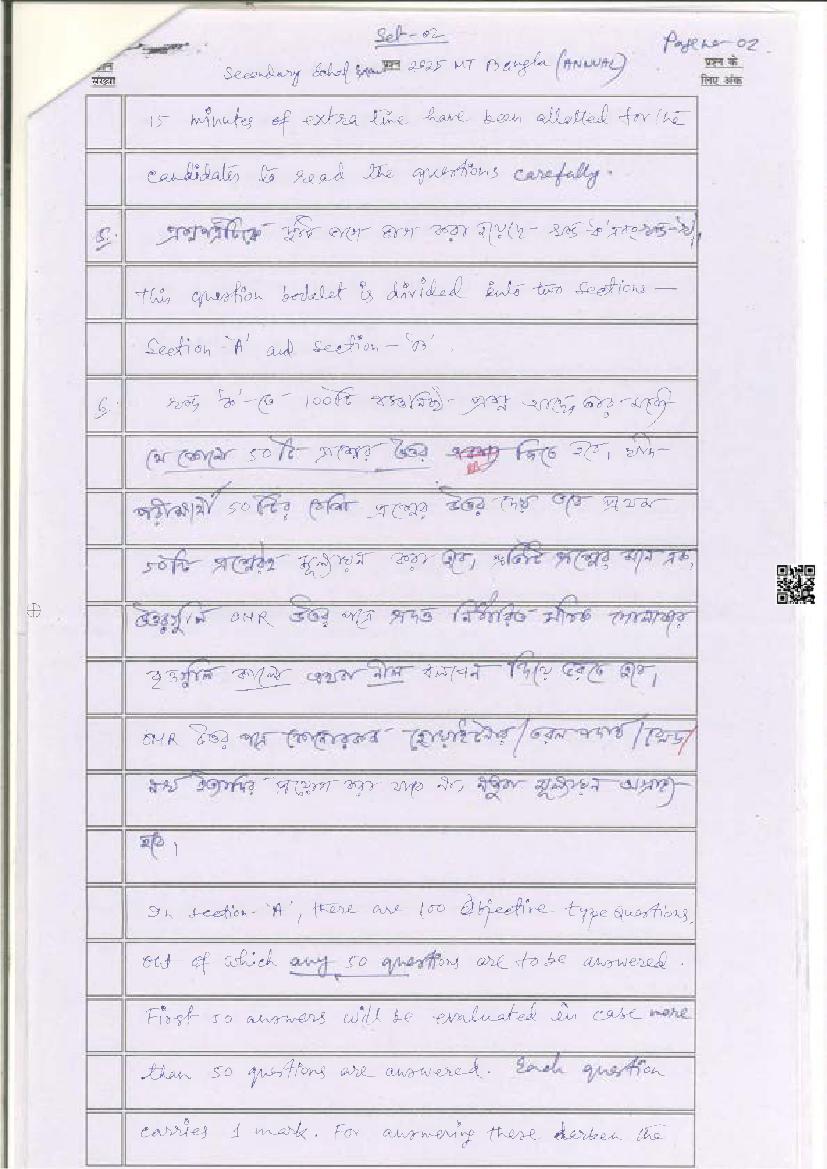 Set-02
Page no-02
Secondary School Exam प्रश्न 2025 MT Bangla (ANNUAL)
संख्या
प्रश्न के
लिए अंक
15 minutes of extra time have been allotted for the
candidates to read the questions carefully.
৫. প্রশ্নপত্রটিকে দুটি ভাগে ভাগ করা হয়েছে- খন্ড-'ক' এবং খন্ড-'খ'।
This question booklet is divided into two sections —
Section 'A' and section - 'B'.
৬. খন্ড 'ক'-তে 100টি বস্তুনিষ্ঠ প্রশ্ন আছে, তার মধ্যে
যে কোনো 50টি প্রশ্নের উত্তর দিতে হবে। যদি
পরীক্ষার্থী 50টির বেশি প্রশ্নের উত্তর দেয় তবে প্রথম
50টি প্রশ্নেরই মূল্যায়ন করা হবে, প্রতিটি প্রশ্নের মান এক,
উত্তরগুলি OMR উত্তর পত্রে প্রদত্ত নির্ধারিত সঠিক গোলাকার
বৃত্তগুলি কালো অথবা নীল বলপেন দিয়ে ভরতে হবে,
OMR উত্তর পত্রে কোনোরকম হোয়াইটনার/তরল পদার্থ/ব্লেড/
নখ ইত্যাদির প্রয়োগ করা যাবে না, নতুবা মূল্যায়ন অগ্রাহ্য
হবে।
In section- 'A', there are 100 Objective type questions,
out of which any 50 questions are to be answered.
First 50 answers will be evaluated in case more
than 50 questions are answered. Each question
carries 1 mark. For answering these darken the